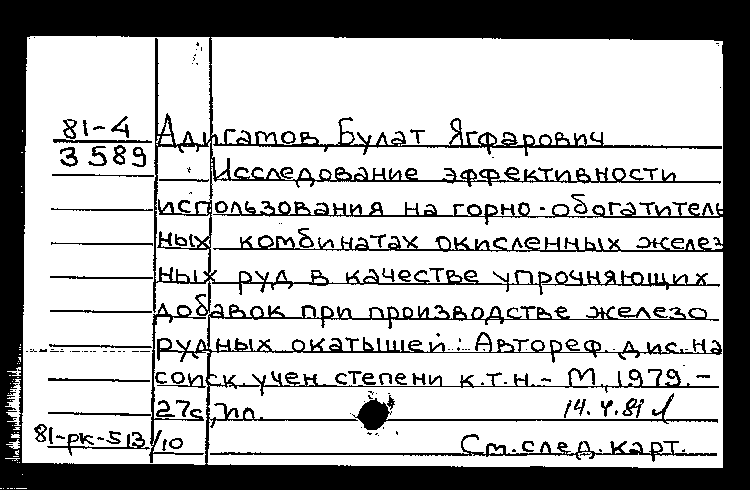 81-4 Адигамов, Булат Ягфарович
3589 Исследование эффективности
использования на горно-обогатитель
ных комбинатах окисленных желез
ных руд в качестве упрочняющих
добавок при производстве железо
рудных окатышей: Автореф. дис. на
соиск. учен. степени к.т.н. - М, 1979. -
27с, ил. 14.4.81
81-рк-513/10 См. след. карт.